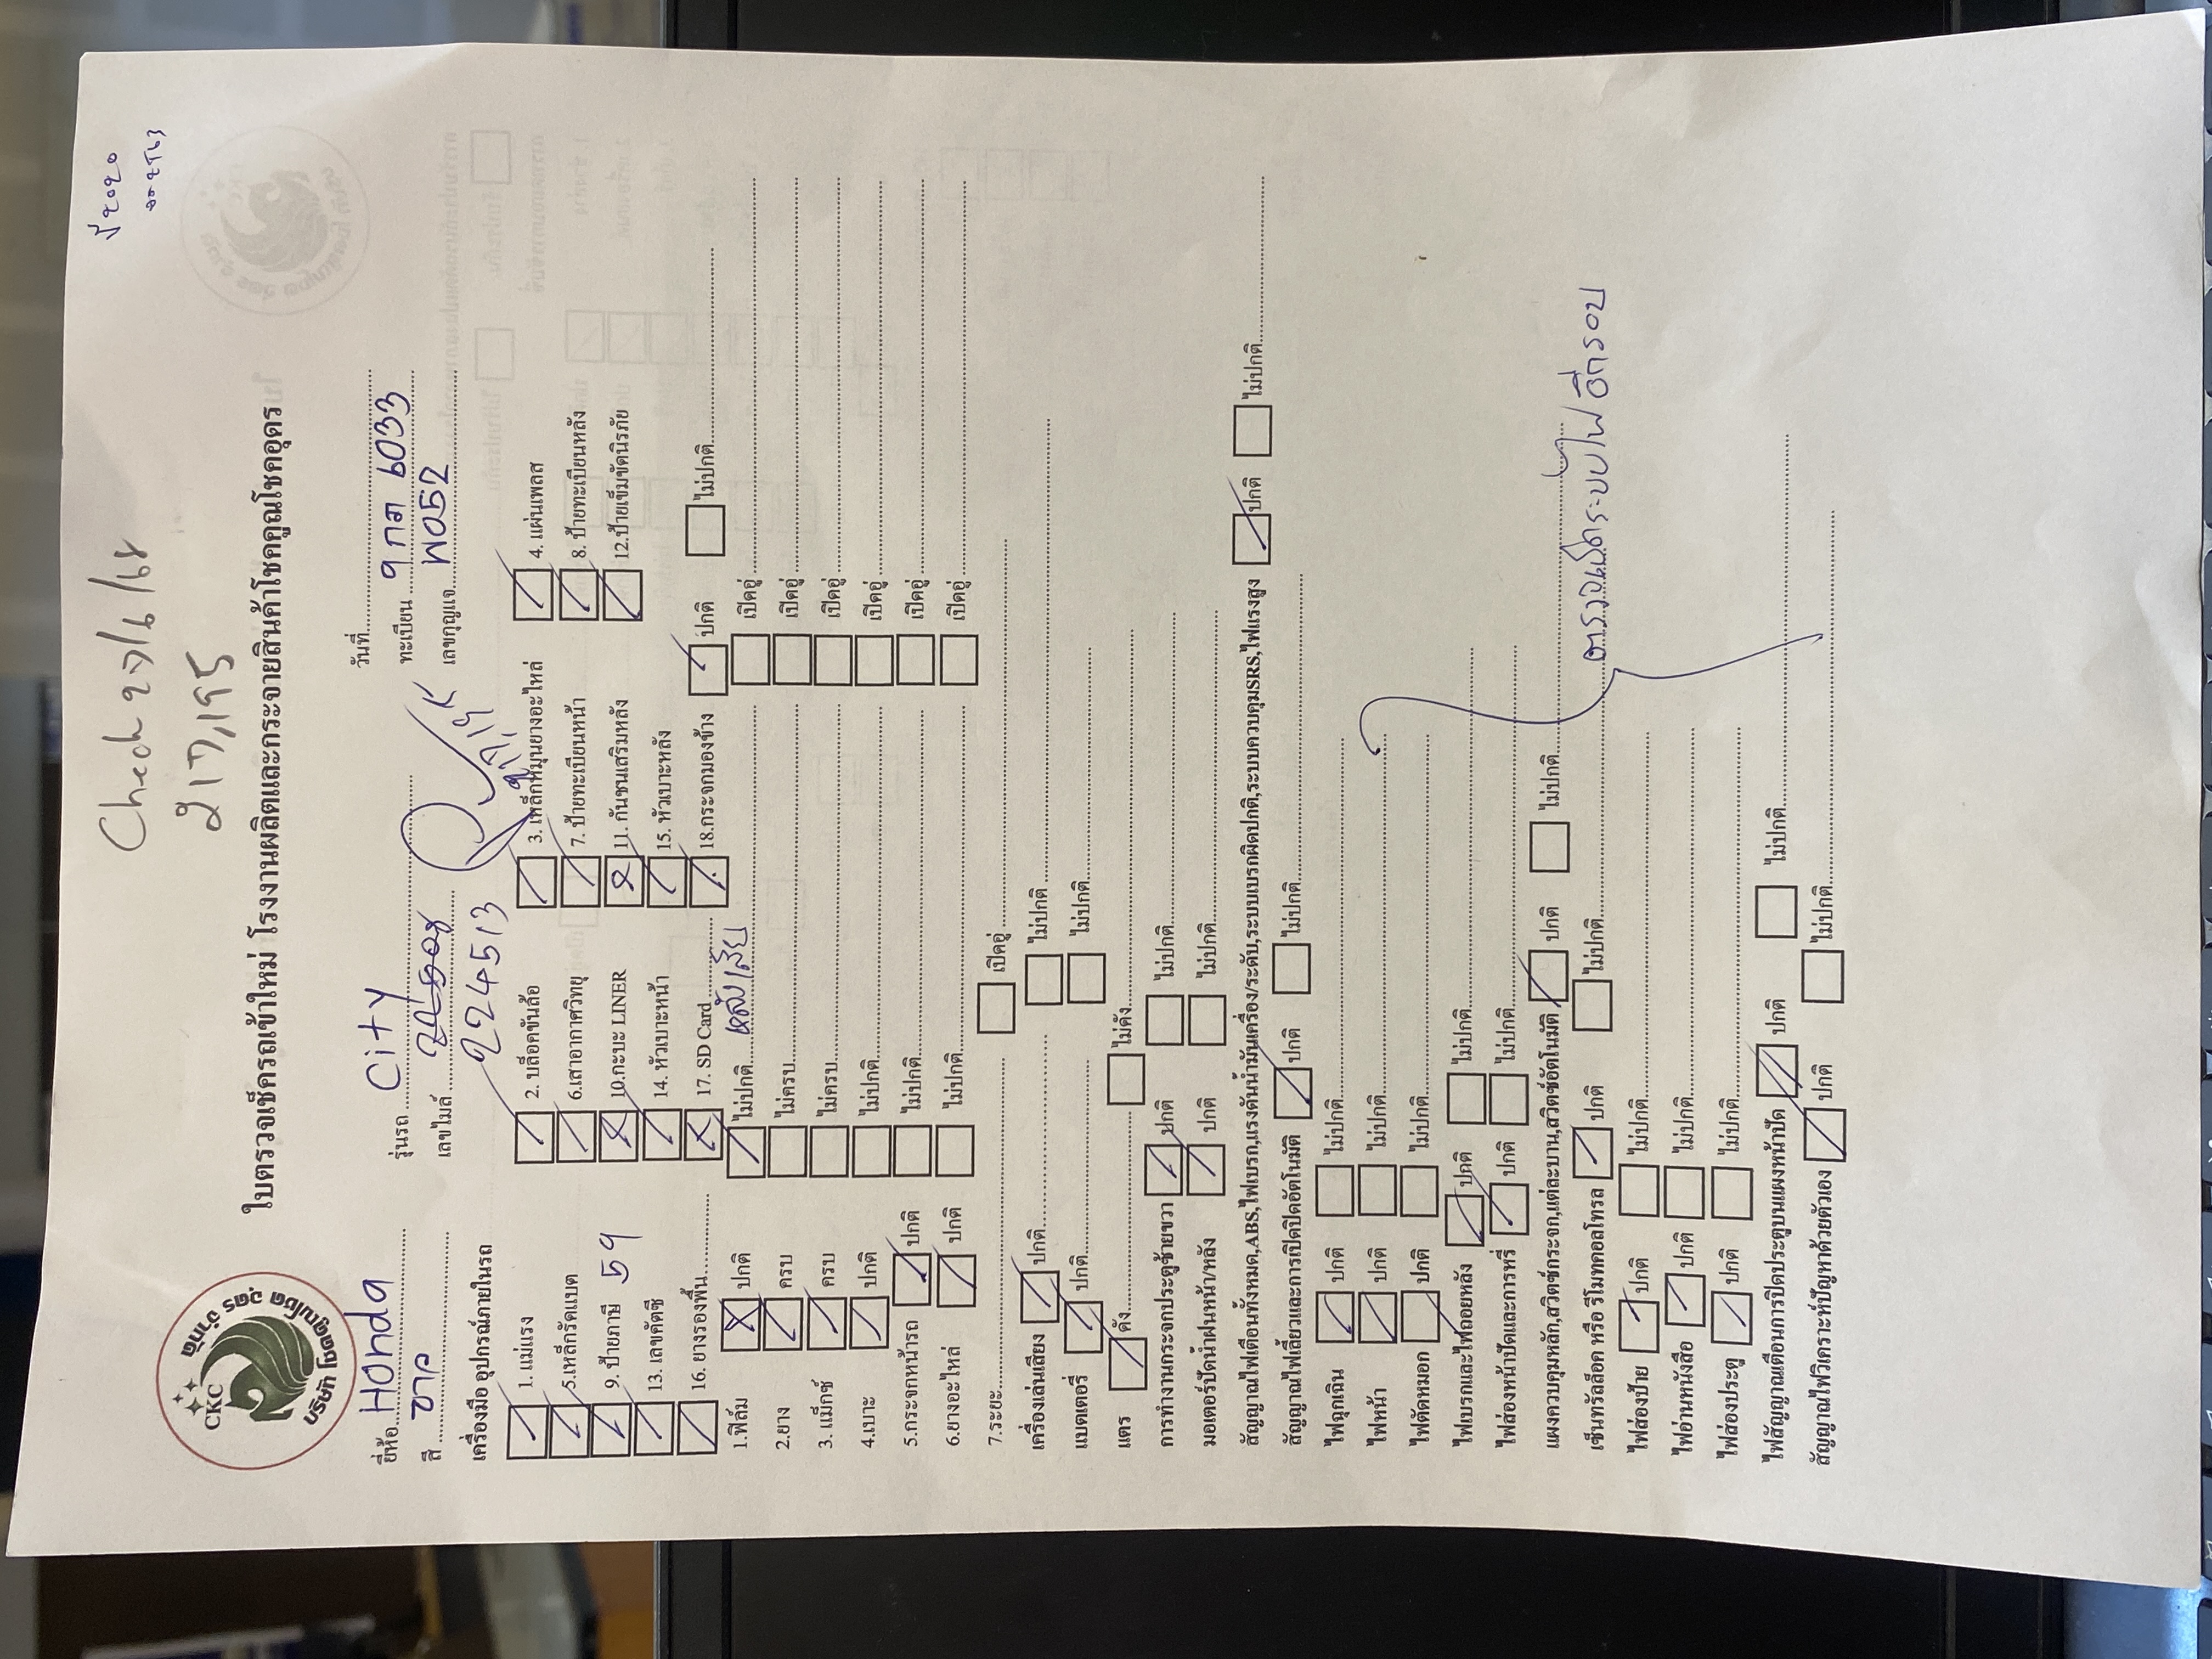 ปี 2020
จดปี63
Check 27/6/68
217,195
CKC
บริษัท คูณโชค อุดร จำกัด
ใบตรวจเช็ครถเข้าใหม่ โรงงานผลิตและกระจายสินค้าโชคคูณโชคอุดร
ยี่ห้อ Honda รุ่นรถ City วันที่
ทะเบียน 9 กก 6033
สี ขาว เลขไมล์ เลขกุญแจ W052
224513
เครื่องมือ อุปกรณ์ภายในรถ
1. แม่แรง 2. บล็อคขันล้อ 3. เหล็กหมุนยางอะไหล่ 4. แผ่นเพลส
5.เหล็กรัดแบต 6.เสาอากาศวิทยุ 7. ป้ายทะเบียนหน้า 8. ป้ายทะเบียนหลัง
9. ป้ายภาษี 59 10.กะบะ LINER 11. กันชนเสริมหลัง 12.ป้ายเข็มขัดนิรภัย
13. เลขคัตซี 14. หัวเบาะหน้า 15. หัวเบาะหลัง
16. ยางรองพื้น 17. SD Card 18.กระจกมองข้าง ปกติ ไม่ปกติ
1.ฟิล์ม ปกติ ไม่ปกติ หลังเสีย เปิดอู่
2.ยาง ครบ ไม่ครบ เปิดอู่
3. แม็กซ์ ครบ ไม่ครบ เปิดอู่
4.เบาะ ปกติ ไม่ปกติ เปิดอู่
5.กระจกหน้ารถ ปกติ ไม่ปกติ เปิดอู่
6.ยางอะไหล่ ปกติ ไม่ปกติ เปิดอู่
7.ระยะ เปิดอู่
เครื่องเล่นเสียง ปกติ ไม่ปกติ
แบตเตอรี่ ปกติ ไม่ปกติ
แตร ดัง ไม่ดัง
การทำงานกระจกประตูซ้ายขวา ปกติ ไม่ปกติ
มอเตอร์ปัดน้ำฝนหน้า/หลัง ปกติ ไม่ปกติ
สัญญาณไฟเตือนทั้งหมด,ABS,ไฟเบรก,แรงดันน้ำมันเครื่อง/ระดับ,ระบบเบรกผิดปกติ,ระบบควบคุมSRS,ไฟแรงสูง ปกติ ไม่ปกติ
สัญญาณไฟเลี้ยวและการเปิดปิดอัตโนมัติ ปกติ ไม่ปกติ
ไฟฉุกเฉิน ปกติ ไม่ปกติ
ไฟหน้า ปกติ ไม่ปกติ
ไฟตัดหมอก ปกติ ไม่ปกติ
ไฟเบรกและไฟถอยหลัง ปกติ ไม่ปกติ
ไฟส่องหน้าปัดและการหรี่ ปกติ ไม่ปกติ
แผงควบคุมหลัก,สวิตซ์กระจก,แต่ละบาน,สวิตซ์อัตโนมัติ ปกติ ไม่ปกติ
เซ็นทรัลล็อค หรือ รีโมทคอลโทรล ปกติ ไม่ปกติ
ตรวจเช็คระบบไฟอีกรอบ
ไฟส่องป้าย ปกติ ไม่ปกติ
ไฟอ่านหนังสือ ปกติ ไม่ปกติ
ไฟส่องประตู ปกติ ไม่ปกติ
ไฟสัญญาณเตือนการปิดประตูบนแผงหน้าปัด ปกติ ไม่ปกติ
สัญญาณไฟวิเคราะห์ปัญหาด้วยตัวเอง ปกติ ไม่ปกติ